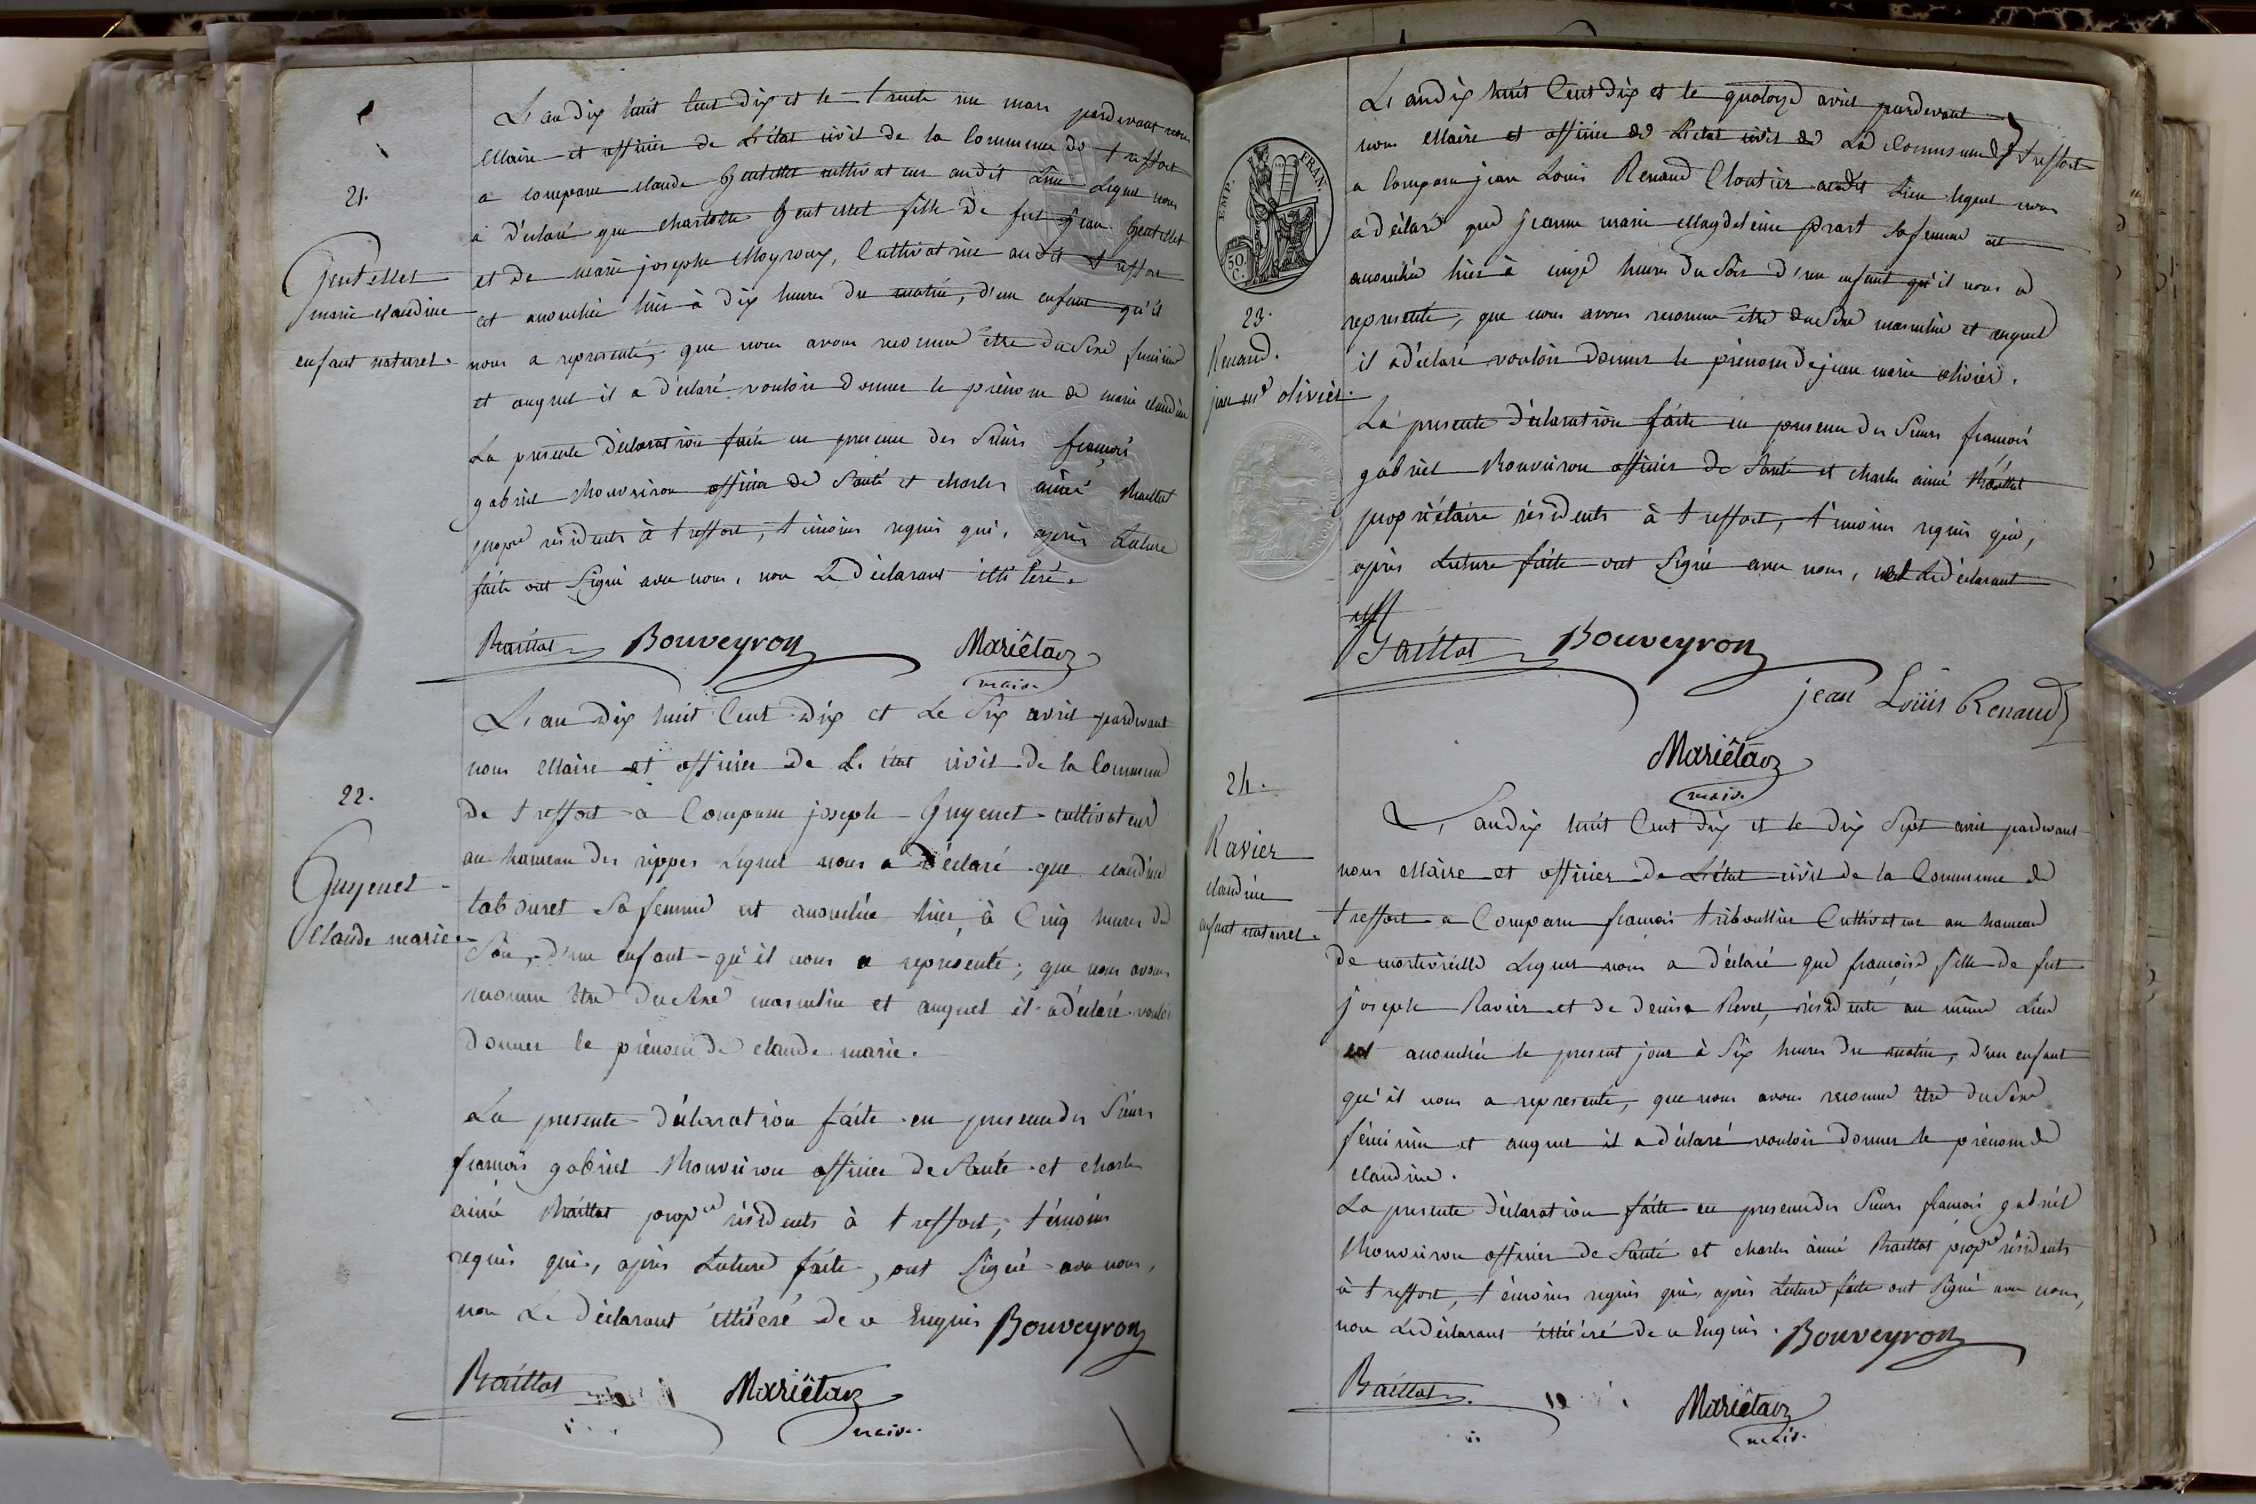 21.
Gentillet
marie claudine
enfant naturel.
L'an dix huit Cent dix et le trente un mars pardevant nous
Maire et officier de L'état civil de la Commune de treffort
a comparu claude Gentillet cultivateur audit Lieu Lequel nous
a déclaré que charlotte Gentillet fille de fut jean Gentillet
et de marie josephe Moyroux, Cultivatrice audit treffort
est accouchée hier à dix heures du matin, d'un enfant qu'il
nous a representé, que nous avons reconnu être du Sexe feminin
et auquel il a déclaré vouloir donner le prénom de marie claudine
La presente déclaration faite en presence des Sieurs françois
gabriel Bouveiron officier de Santé et charles aimé Baillat
propre résidents à treffort, témoins requis qui, après Lecture
faite ont Signé avec nous, non Le déclarant illitéré.
Baillat Bouveyron Mariétan
maire
22.
Guyenet
Claude marie.
L'an dix huit Cent dix et Le Six avril pardevant
nous Maire et officier de L'état civil de la Commune
de treffort a Comparu joseph Guyenet cultivateur
au hameau des rippes Lequel nous a déclaré que claudine
tabouret Sa femme est accouchée hier, à Cinq heures du
Soir, d'un enfant qu'il nous a representé, que nous avons
reconnu être du Sexe masculin et auquel il a déclaré vouloir
donner le prénom de claude marie.
La presente déclaration faite en presence des Sieurs
françois gabriel Bouveiron officier de Santé et charles
aimé Baillat propre résidents à treffort, témoins
requis qui, après Lecture faite, ont Signé avec nous,
non Le déclarant illitéré de ce Enquis Bouveyron
Baillat Mariétan
maire.
EMP. FRAN.
50.
C.
23.
Renaud.
jean me olivier.
L'an dix huit Cent dix et le quatorze avril pardevant
nous Maire et officier de L'état civil de La Commune de treffort
a Comparu jean Louis Renaud Cloutier audit Lieu lequel nous
a déclaré que jeanne marie Magdeleine Prart Sa femme est
accouchée hier à onze heures du Soir d'un enfant qu'il nous a
representé, que nous avons reconnu être du Sexe masculin et auquel
il a déclaré vouloir donner le prénom de jean marie olivier.
La presente déclaration faite en presence des Sieurs françois
gabriel Bouveiron officier de Santé et charles aimé Baillat
propriétaire résidents à treffort, témoins requis qui,
après Lecture faite ont Signé avec nous, et Le déclarant
Baillat Bouveyron
jean Loüis Renaud
Mariétan
maire
24.
Ravier
claudine
enfant naturel.
L'an dix huit Cent dix et le dix Sept avril pardevant
nous Maire et officier de L'état civil de la Commune de
treffort a Comparu françois tribouillier Cultivateur au hameau
de montcrieille Lequel nous a déclaré que françoise fille de fut
joseph Ravier et de denise Revel, résidente au même Lieu
est accouchée le present jour à Six heures du matin, d'un enfant
qu'il nous a representé, que nous avons reconnu être du Sexe
féminin et auquel il a déclaré vouloir donner le prénom de
claudine.
La presente déclaration faite en presence des Sieurs françois gabriel
Bouveiron officier de Santé et charles aimé Baillat propre résidents
à treffort, témoins requis qui, après Lecture faite ont Signé avec nous,
non Le déclarant illitéré de ce Enquis. Bouveyron
Baillat Mariétan
maire.